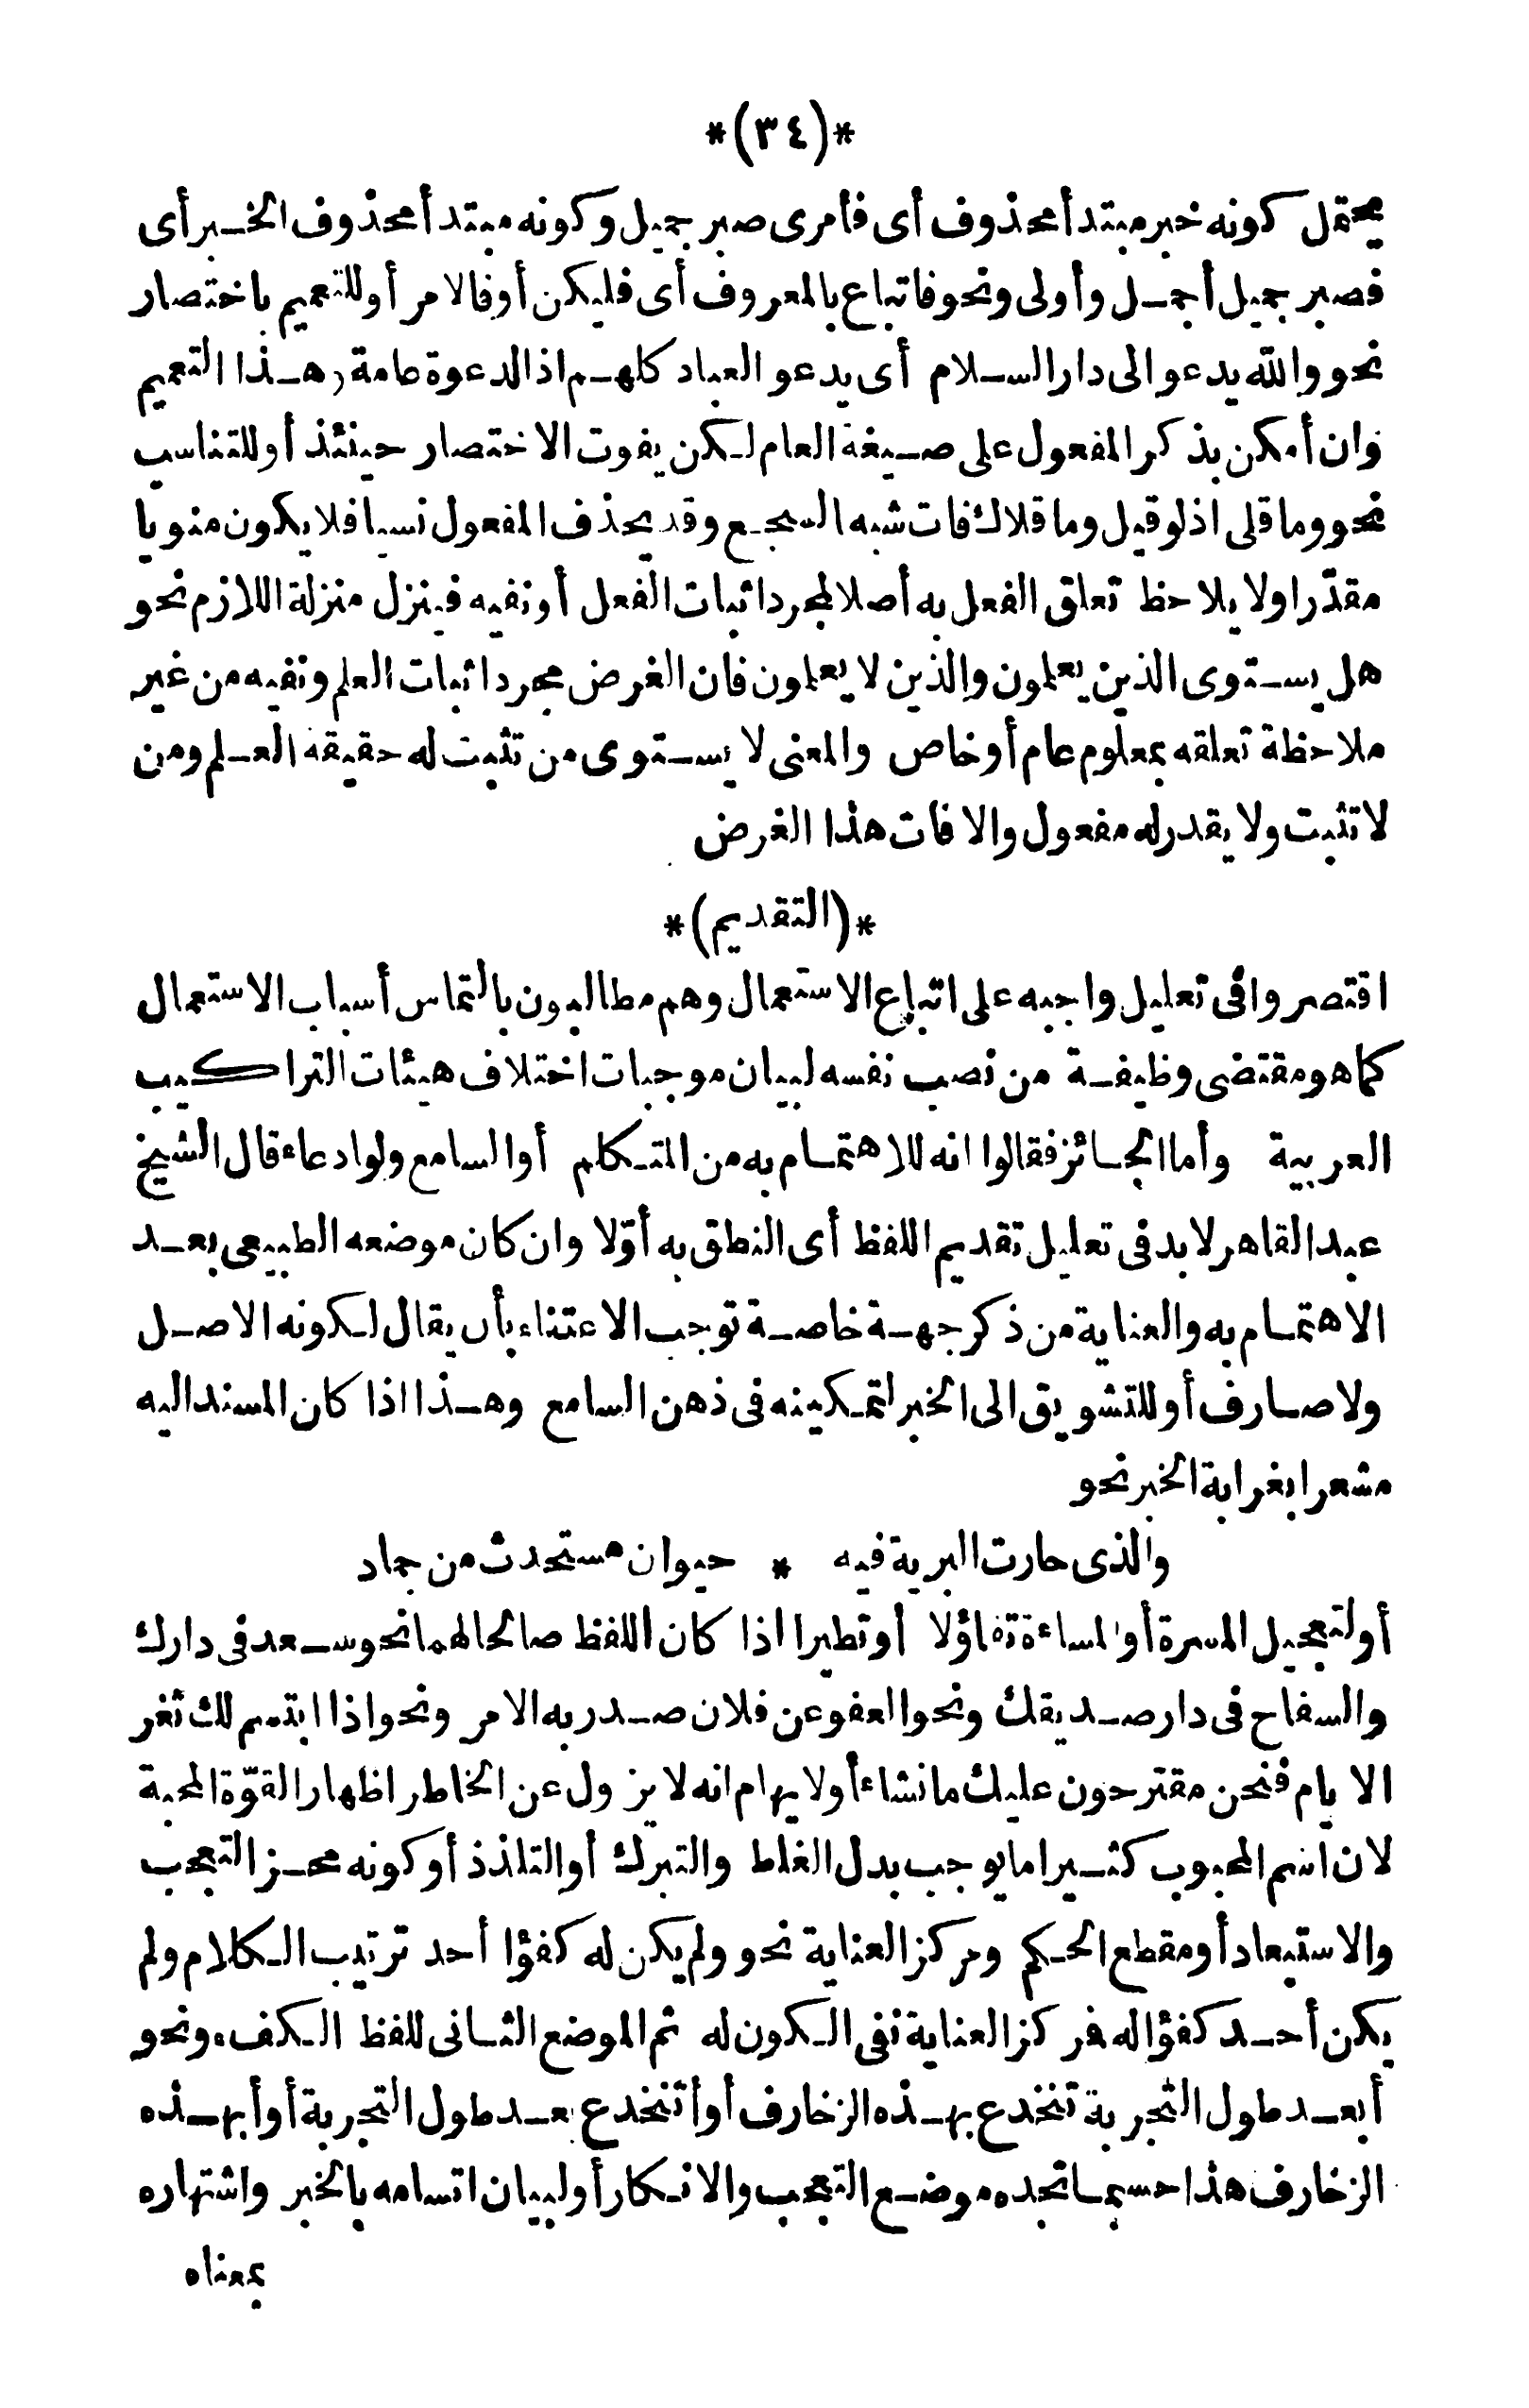 *(٣٤)*
يحتمل كونه خبر مبتدأ محذوف أى فأمرى صبر جميل وكونه مبتدأ محذوف الخبر أى
فصبر جميل أجمل وأولى ونحو فاتباع بالمعروف أى فليكن أو فالامر أو للتعميم باختصار
نحو والله يدعو الى دار السلام أى يدعو العباد كلهم اذ الدعوة عامة وهذا التعميم
وان أمكن بذكر المفعول على صيغة العام لكن يفوت الاختصار حينئذ أو للتناسب
نحو وما قلى اذ لو قيل وما قلاك فات شبه السجع وقد يحذف المفعول نسيا فلا يكون منويا
مقدّرا ولا يلاحظ تعلق الفعل به أصلا لمجرد اثبات الفعل أو نفيه فينزل منزلة اللازم نحو
هل يستوى الذين يعلمون والذين لا يعلمون فان الغرض مجرد اثبات العلم ونفيه من غير
ملاحظة تعلقه بمعلوم عام أو خاص والمعنى لا يستوى من تثبت له حقيقة العلم ومن
لا تثبت ولا يقدر له مفعول والا فات هذا الغرض
*(التقديم)*
اقتصروا فى تعليل واجبه على اتباع الاستعمال وهم مطالبون بالتماس أسباب الاستعمال
كما هو مقتضى وظيفة من نصب نفسه لبيان موجبات اختلاف هيئات التراكيب
العربية وأما الجائز فقالوا انه للاهتمام به من المتكلم أو السامع ولو ادعاء قال الشيخ
عبد القاهر لا بد فى تعليل تقديم اللفظ أى النطق به أوّلا وان كان موضعه الطبيعى بعد
الاهتمام به والعناية من ذكر جهة خاصة توجب الاعتناء بأن يقال لكونه الاصل
ولا صارف أو للتشويق الى الخبر لتمكينه فى ذهن السامع وهذا اذا كان المسند اليه
مشعرا بغرابة الخبر نحو
والذى حارت البرية فيه * حيوان مستحدث من جماد
أو لتعجيل المسرة أو المساءة تفاؤلا أو تطيرا اذا كان اللفظ صالحا لهما نحو سعد فى دارك
والسفاح فى دار صديقك ونحو العفو عن فلان صدر به الامر ونحو اذا ابتسم لك ثغر
الايام فنحن مقترحون عليك ما نشاء أو لايهام انه لا يزول عن الخاطر اظهار القوّة المحبة
لان اسم المحبوب كثيرا ما يوجب بدل الغلط والتبرك أو التلذذ أو كونه محز التعجب
والاستبعاد أو مقطع الحكم ومركز العناية نحو ولم يكن له كفؤا أحد ترتيب الكلام ولم
يكن أحد كفؤا له فمركز العناية نفى الكون له ثم الموضع الثانى للفظ الكفء ونحو
أبعد طول التجربة تنخدع بهذه الزخارف أو أتنخدع بعد طول التجربة أو أبهذه
الزخارف هذا حسبما تجده موضع التعجب والانكار أو لبيان اتسامه بالخبر واشتهاره
بمعناه